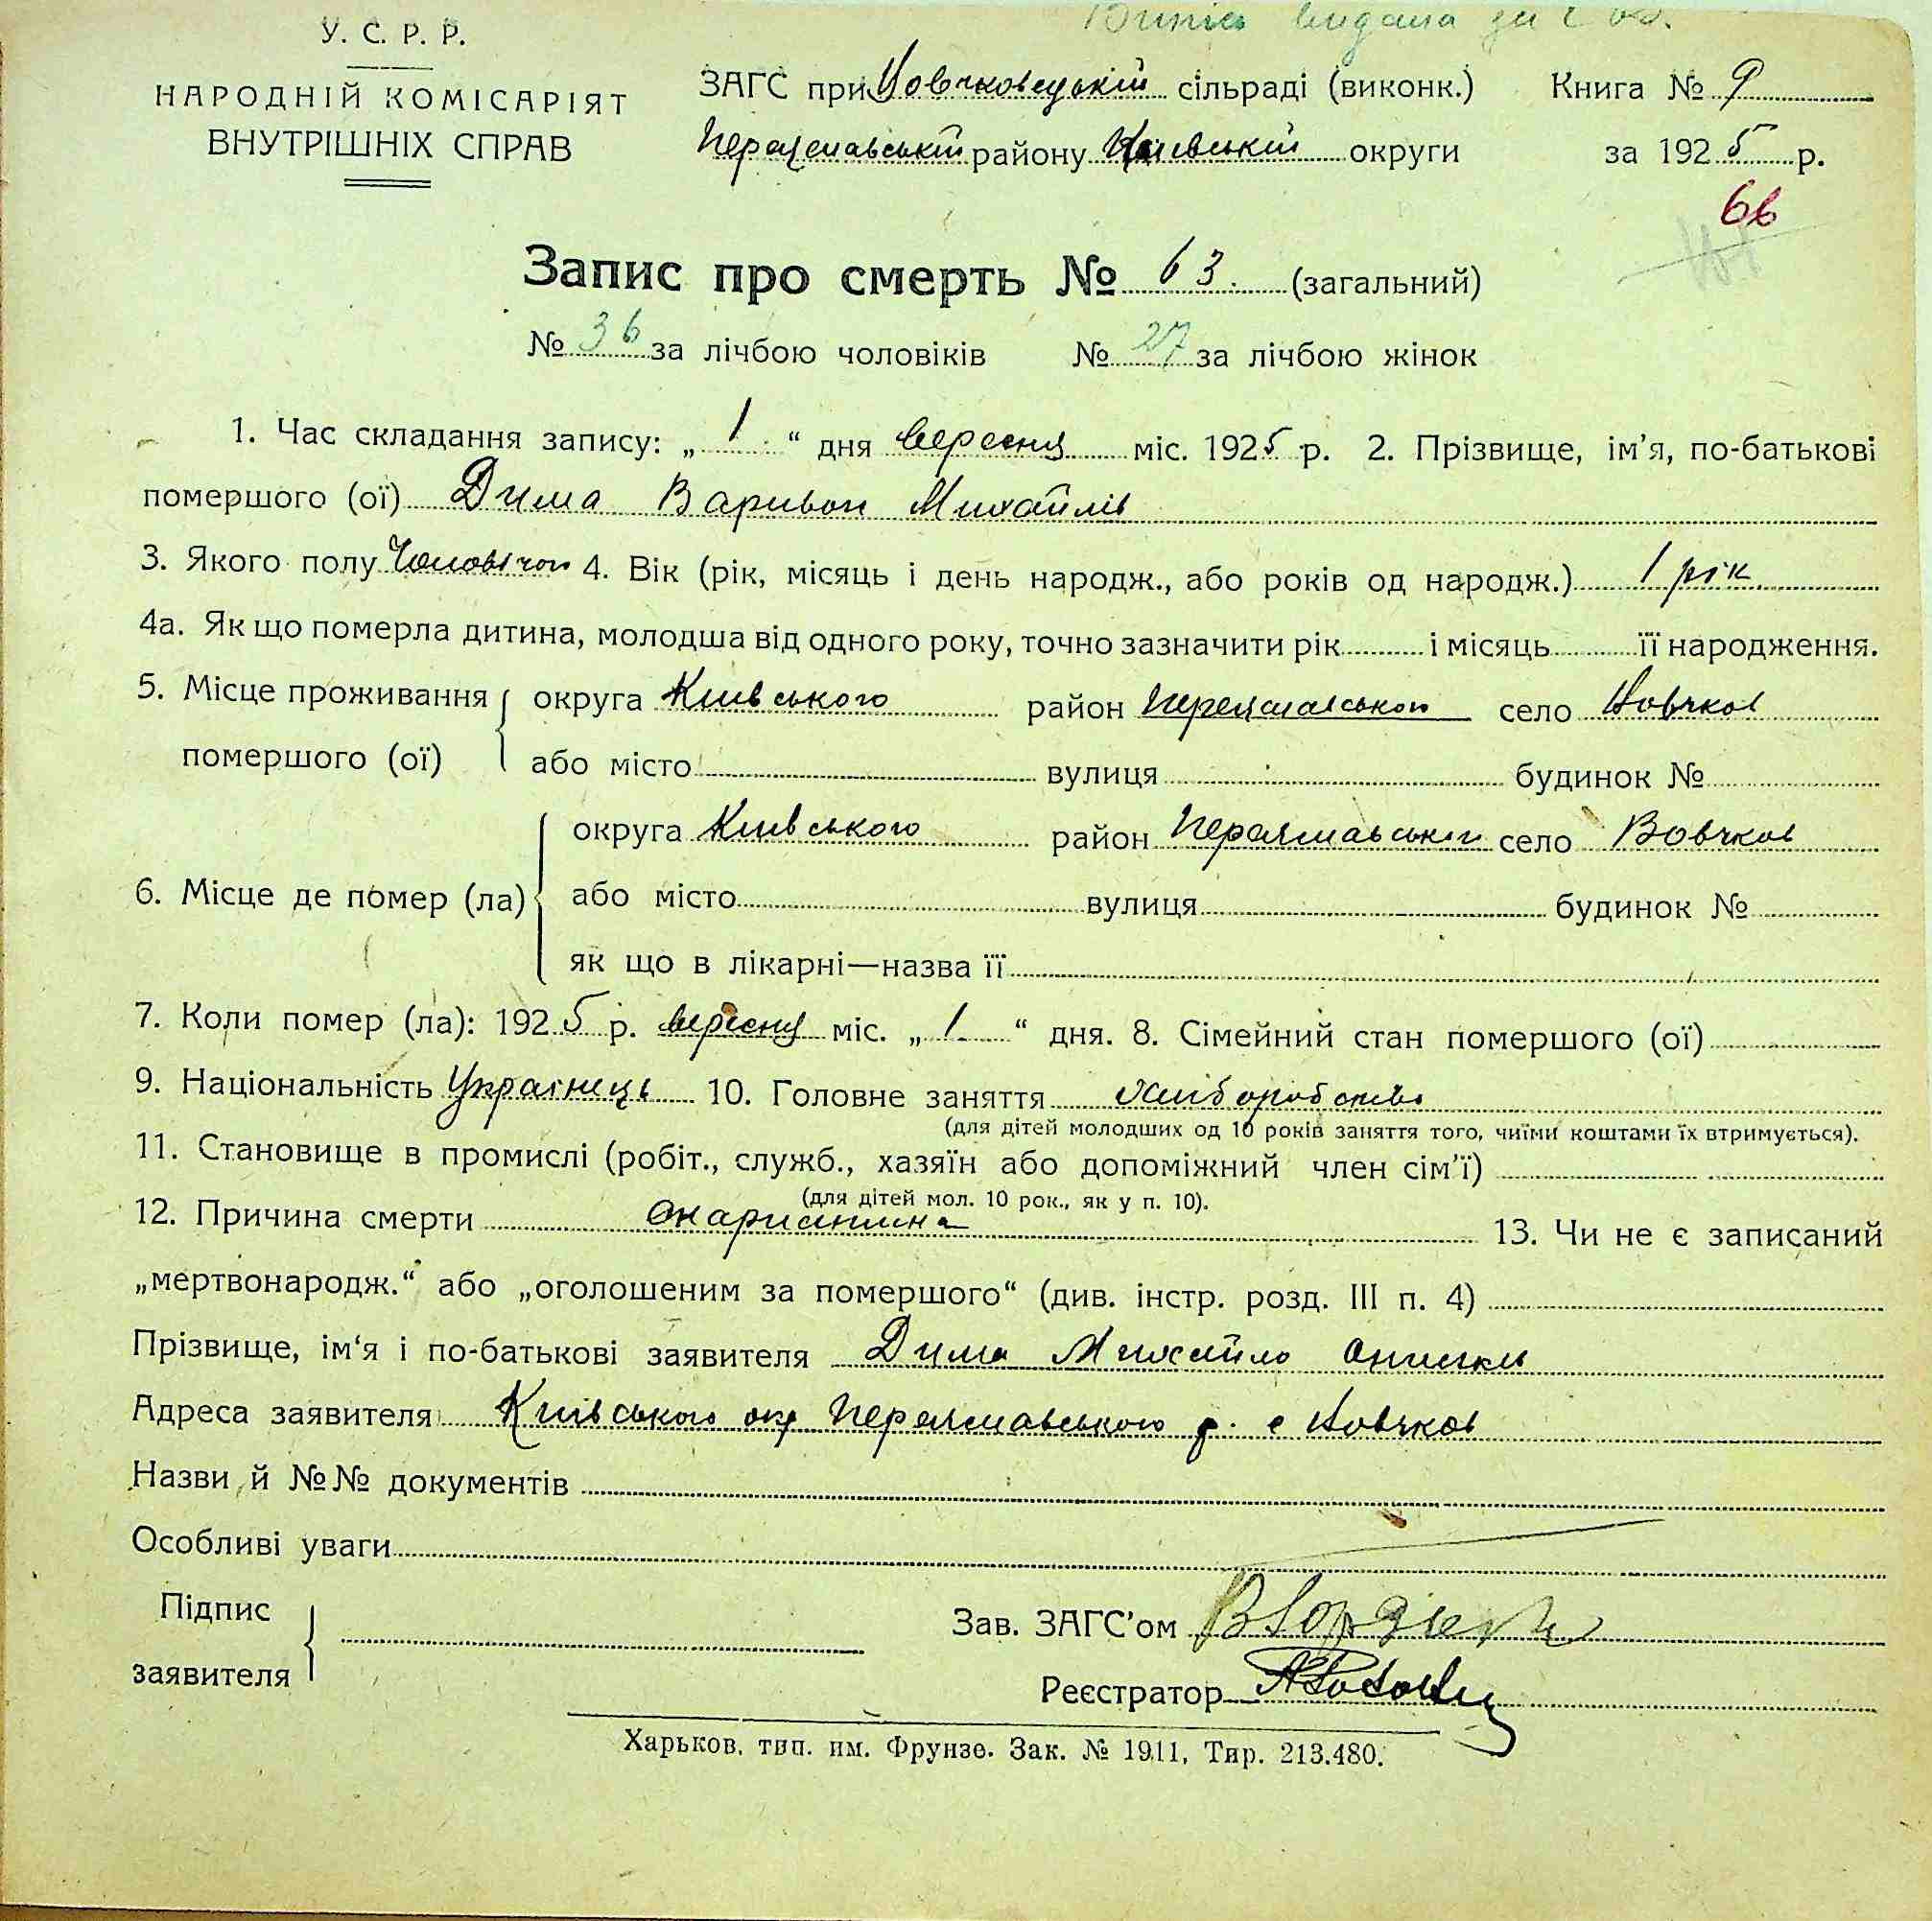 Випись видана
У. С. Р. Р.
НАРОДНІЙ КОМІСАРІЯТ
ВНУТРІШНІХ СПРАВ
ЗАГС при Вовчковецькій сільраді (виконк.) Книга № 9
Переяславській району Київській округи за 1925 р.
66
Запис про смерть № 63. (загальний)
№ 36 за лічбою чоловіків № 27 за лічбою жінок
1. Час складання запису: „ 1 “ дня вересня міс. 1925 р. 2. Прізвище, ім’я, по-батькові
помершого (ої) Дима Варивон Михайлів
3. Якого полу Чоловічого 4. Вік (рік, місяць і день народж., або років од народж.) 1 рік
4а. Як що померла дитина, молодша від одного року, точно зазначити рік і місяць її народження.
5. Місце проживання помершого (ої) округа Київського район Переяславського село Вовчков
або місто вулиця будинок №
6. Місце де помер (ла) округа Київського район Переяславській село Вовчков
або місто вулиця будинок №
як що в лікарні—назва її
7. Коли помер (ла): 1925 р. вересня міс. „ 1 “ дня. 8. Сімейний стан помершого (ої)
9. Національність Українець 10. Головне заняття Хліборобство
(для дітей молодших од 10 років заняття того, чиїми коштами їх втримується).
11. Становище в промислі (робіт., служб., хазяїн або допоміжний член сім’ї)
(для дітей мол. 10 рок., як у п. 10).
12. Причина смерти Скарлятина 13. Чи не є записаний
„мертвонародж.“ або „оголошеним за помершого“ (див. інстр. розд. III п. 4)
Прізвище, ім‘я і по-батькові заявителя Дима Михайло
Адреса заявителя Київського окр Переяславського р. с Вовчков
Назви й №№ документів
Особливі уваги
Підпис заявителя
Зав. ЗАГС’ом
Реєстратор
Харьков, тип. им. Фрунзе. Зак. № 1911, Тир. 213.480.